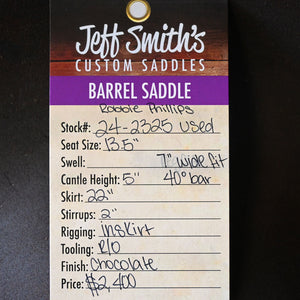 Jeff Smith's
CUSTOM SADDLES
BARREL SADDLE
Robbie Phillips
Stock#: 24-2325 used
Seat Size: 13.5"
Swell: 7" wide fit
Cantle Height: 5" 40° bar
Skirt: 22"
Stirrups: 2"
Rigging: inskirt
Tooling: R/O
Finish: Chocolate
Price: $2,400